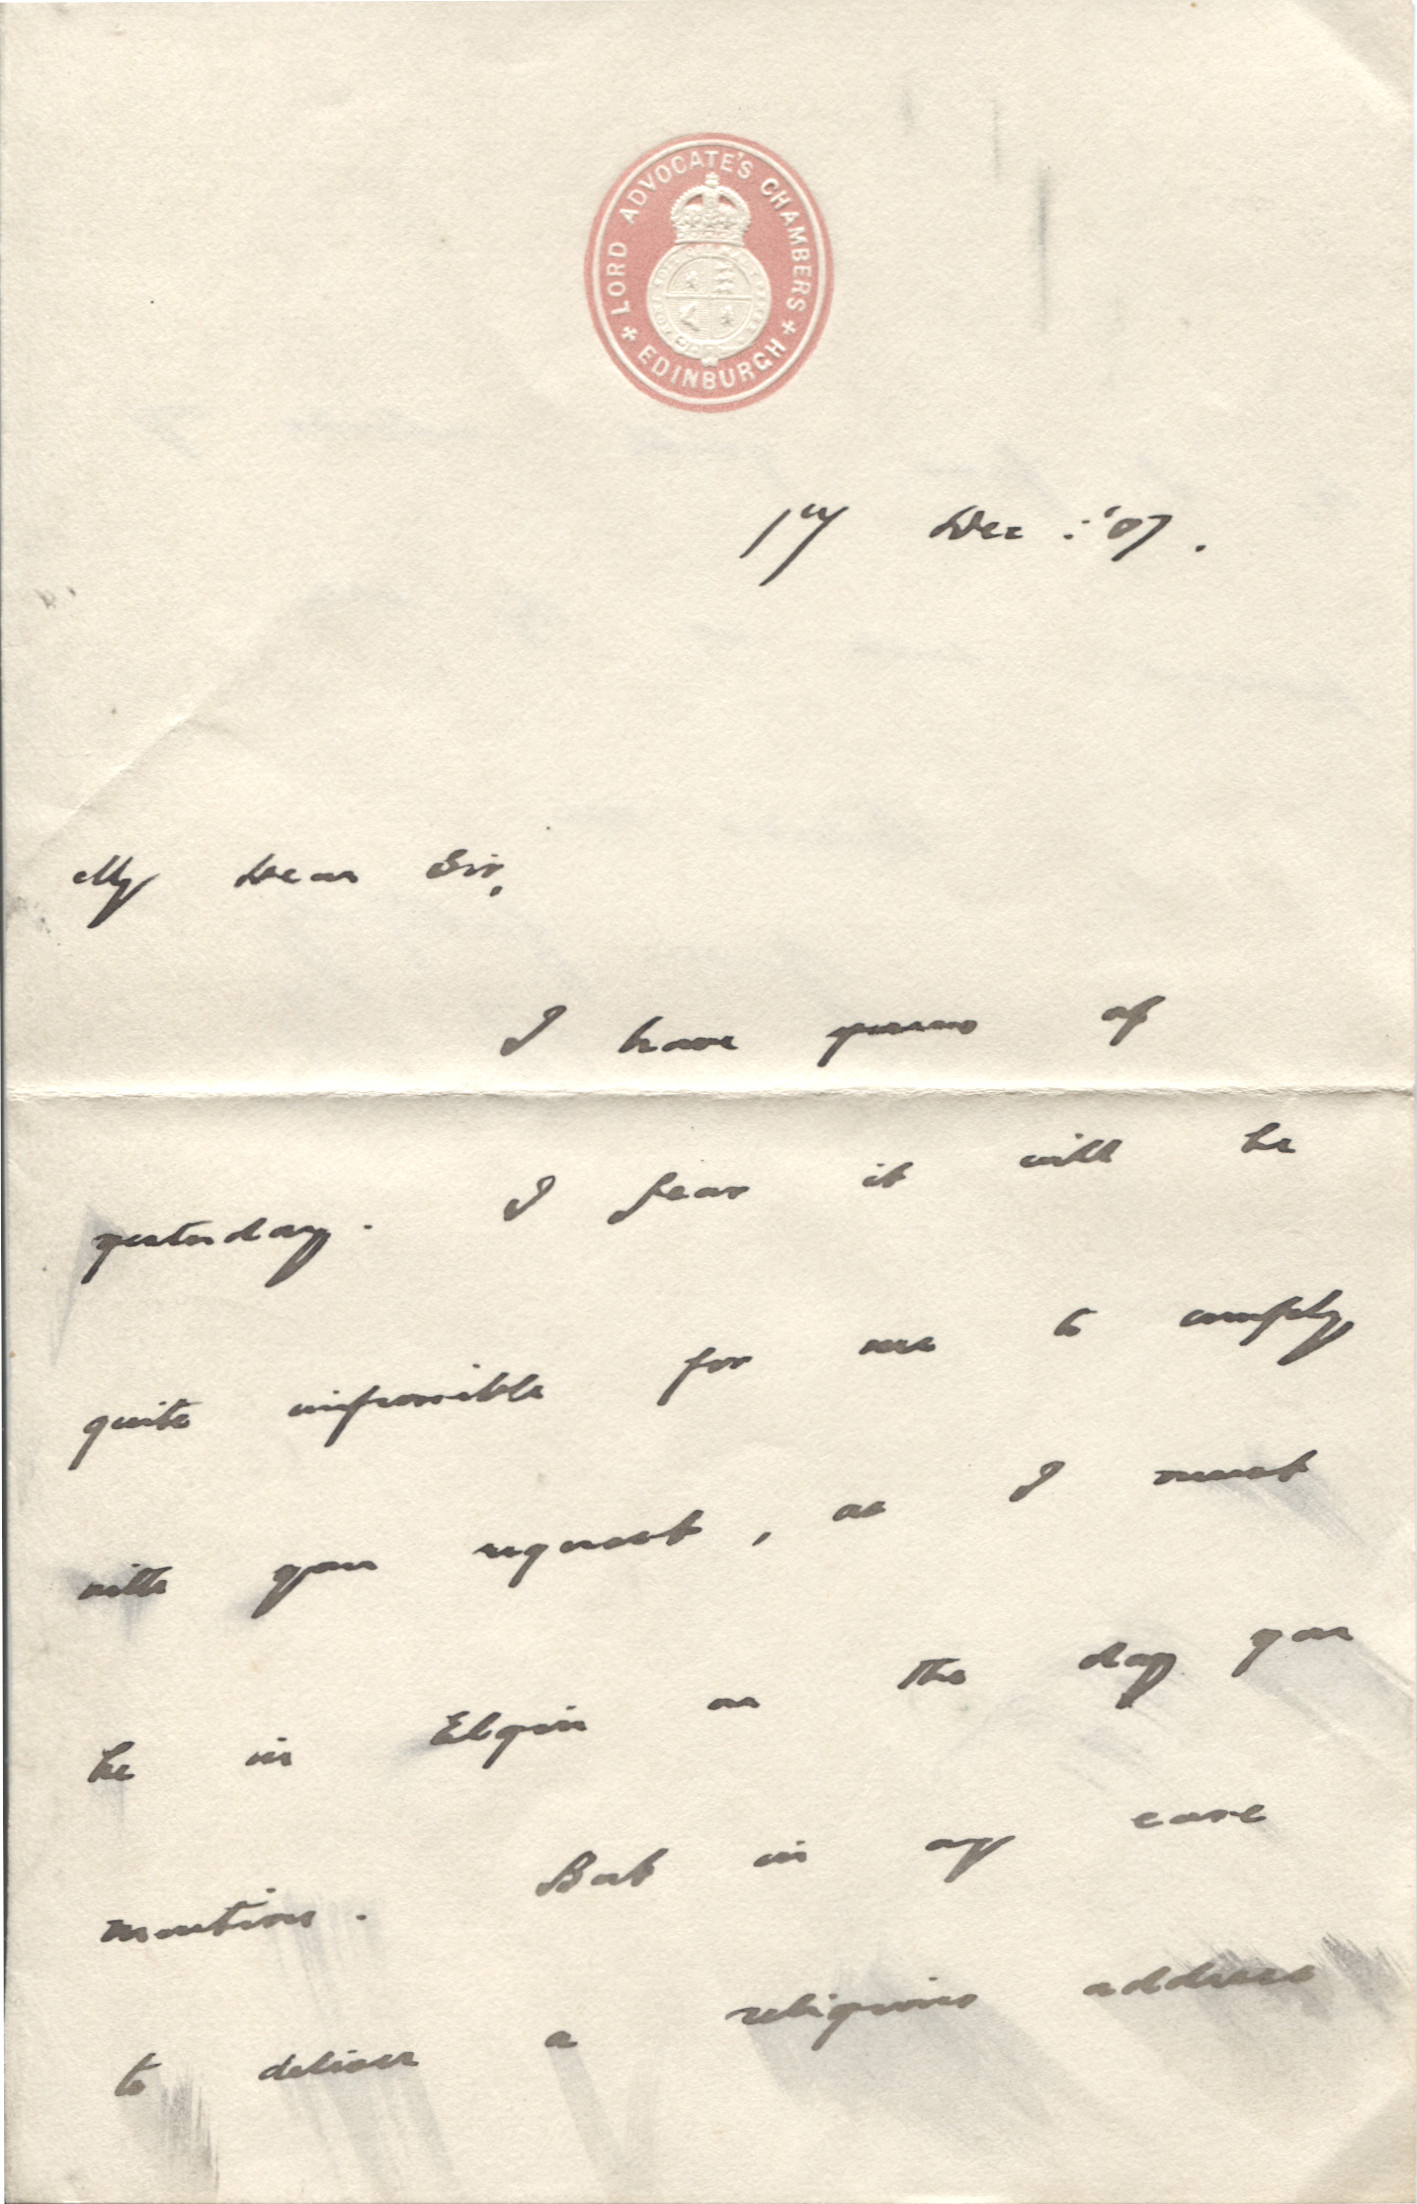 LORD ADVOCATE'S CHAMBERS
EDINBURGH
Dec: '07.
My Dear Sir,
I have yours of
yesterday. I fear it will be
quite impossible for me to comply
with your request, as I must
be in Elgin on the day you
mention. But in any case
to deliver a religious address